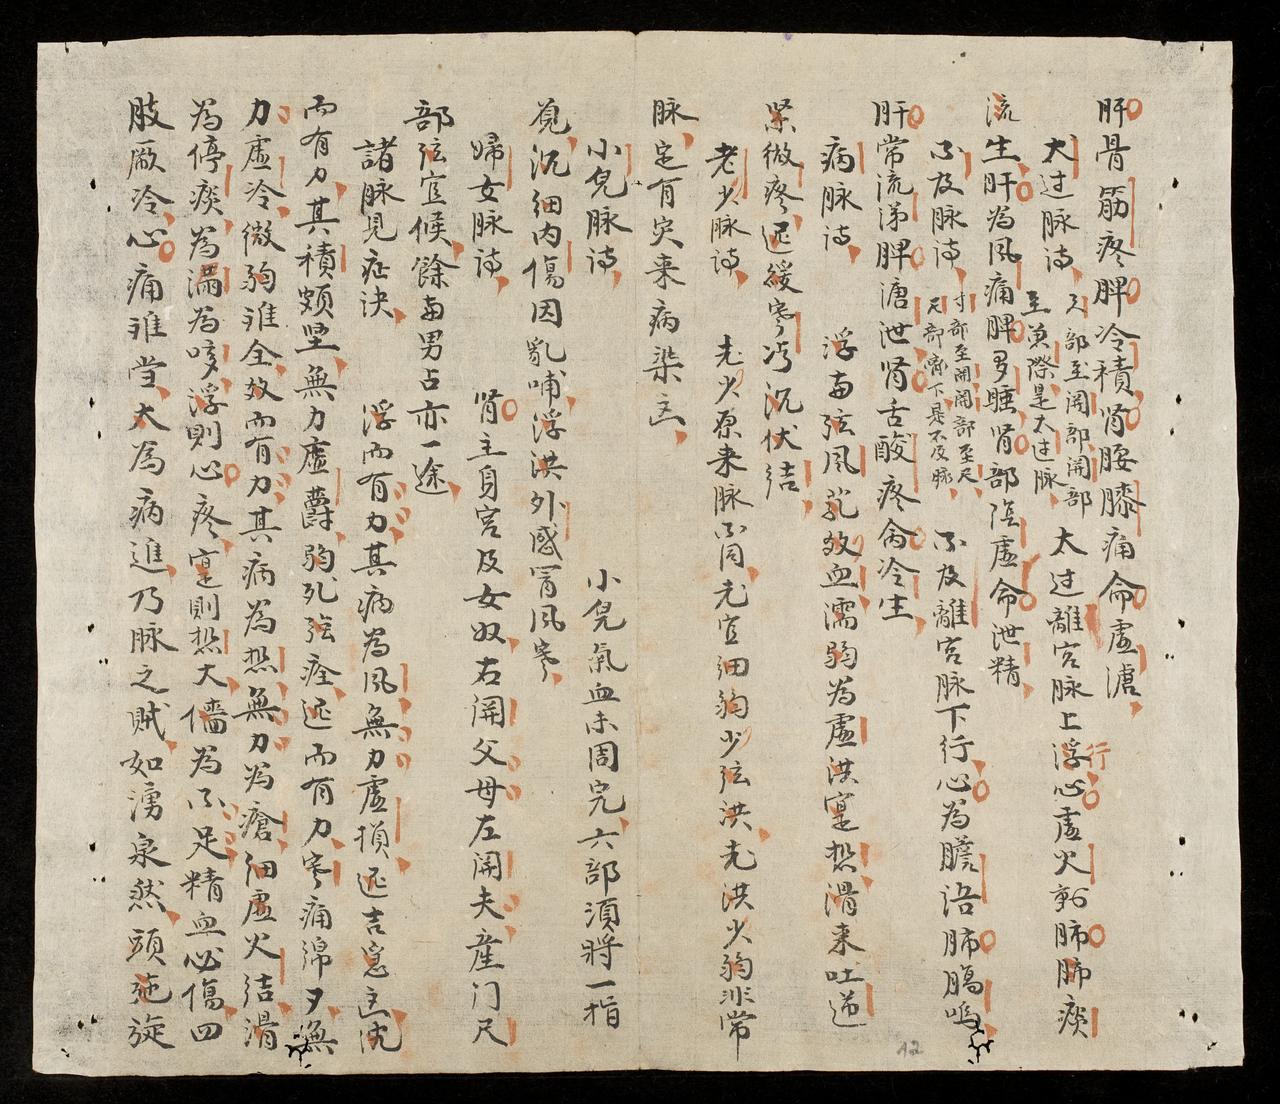 肝骨筋疼脾冷積肾腰膝痛命虚瀉
大过脉诗 寸部至関部関部至魚際是太过脉 大过離宮脉上浮行心虚火動肺肺痰
流生肝為風痛脾多睡肾部陰虚命泄精
不及脉诗 寸部至関関部至尺尺部齊下是不及脉 不及離宮脉下行心為膽语肺腸鳴
肝常流涕脾溏泄肾舌酸疼命冷生
病脉诗 浮南弦風芤效血濡弱為虚洪寔热滑来吐逆
紧微疼迟緩寒冷沉伏结
老少脉诗 老少原来脉不同老宜细弱少弦洪老洪少弱非常
脉定有灾来病染
小兒脉诗 小兒氣血未周完六部須將一指
覓沉细内傷因亂哺浮洪外感冒風寒
婦女脉诗 肾主身宮及女奴右関父母左関夫產门尺
部弦宜候餘男占亦一途
諸脉見症决 浮而有力其病為風無力虚損迟吉沈
而有力其積頗坚無力虚弱死弦痊迟而有力寒痛綿無
力虚冷微弱难全效而有力其病為热無力為瘡细虚火结滑
為停痰為滿為咳浮則心疼寔則热大為不足精血必傷四
肢厥冷心痛难當大為病進乃脉之賊如湧泉然頭旋